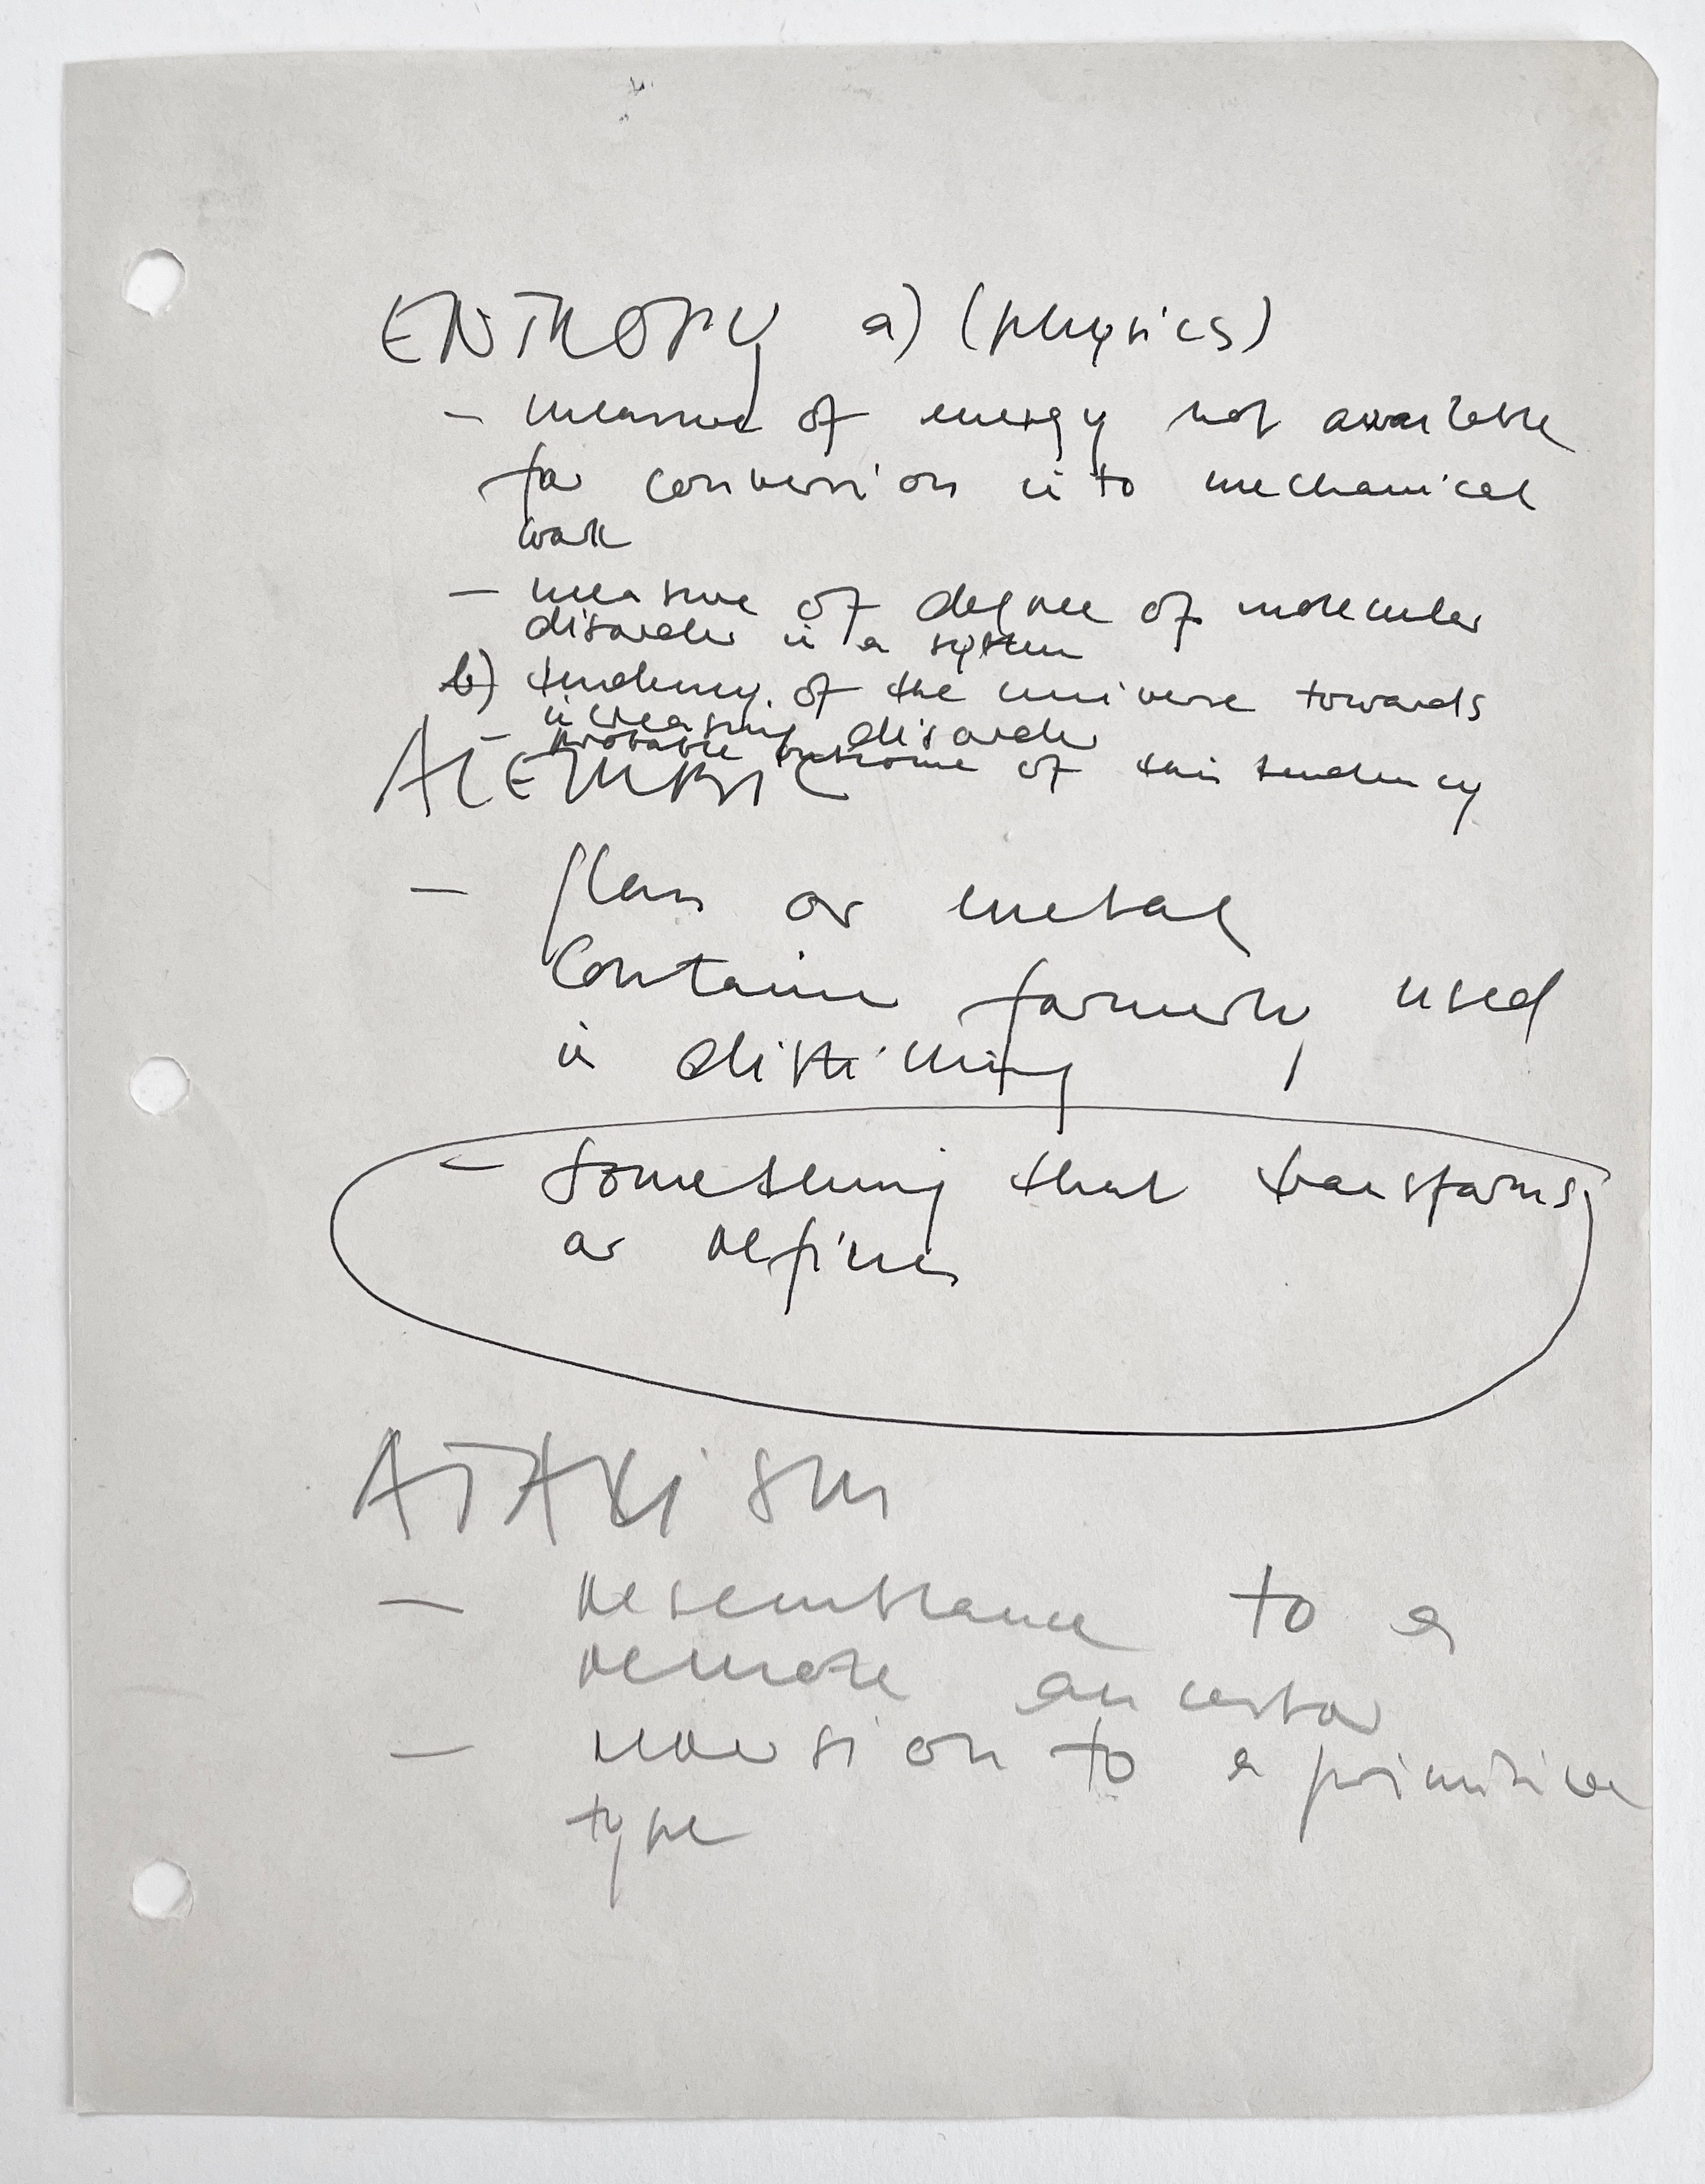 ENTROPY a) (physics)
– measure of energy not available
for conversion into mechanical
work
– measure of degree of molecular
disorder in a system
b) tendency of the universe towards
increasing disorder
– probable outcome of this tendency
ALEMBIC
– glass or metal
container formerly used
in distilling
– something that transforms
or refines
ATAVISM
– resemblance to a
remote ancestor
– reversion to a primitive
type